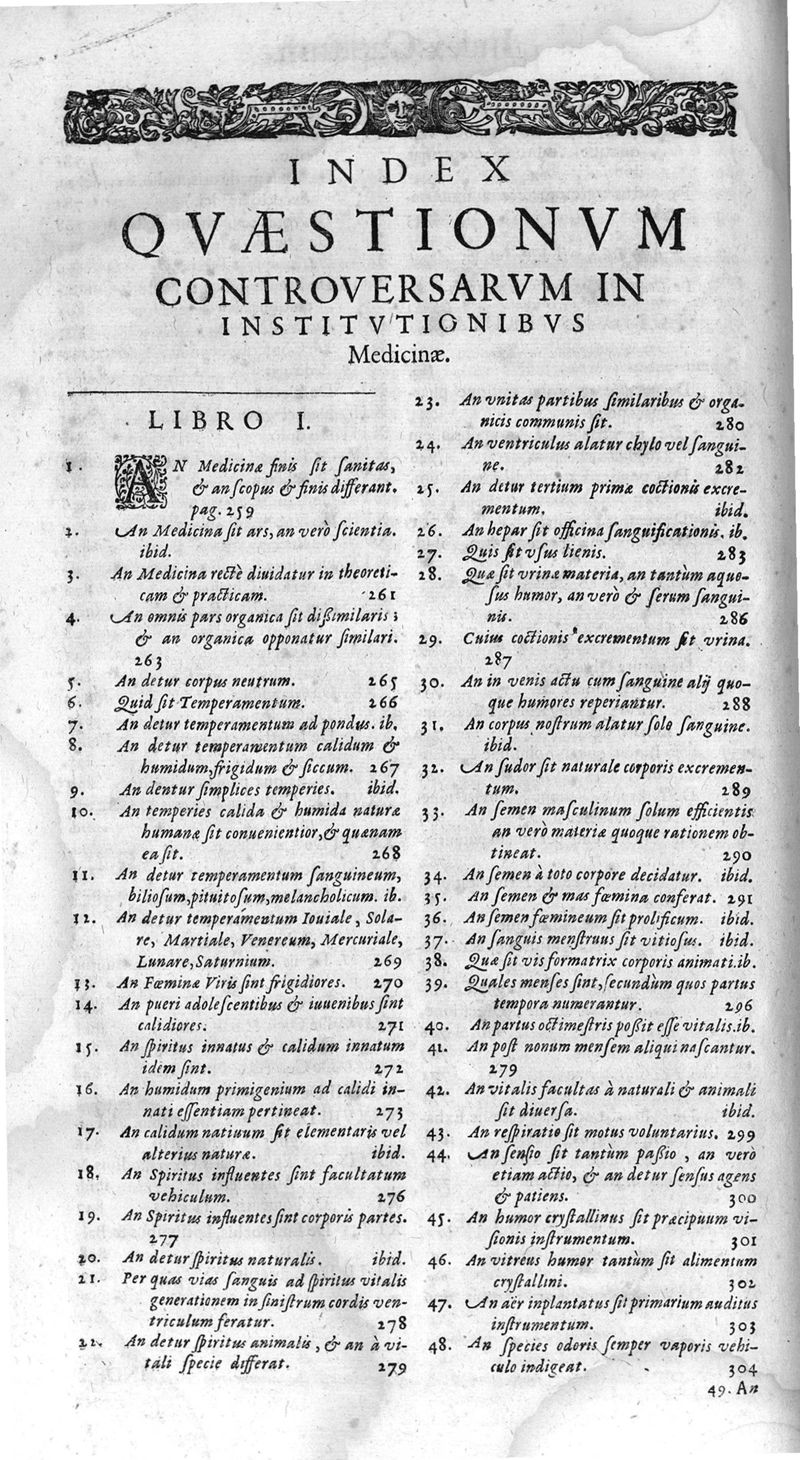 INDEX
QVÆSTIONVM
CONTROVERSARVM IN
INSTITVTIONIBVS
Medicinæ.
LIBRO I.
1. AN Medicinæ finis ſit ſanitas,
& an ſcopus & finis differant.
pag. 259
2. An Medicina ſit ars, an verò ſcientia.
ibid.
3. An Medicina rectè diuidatur in theoreti-
cam & practicam. 261
4. An omnis pars organica ſit diſſimilaris ;
& an organica opponatur ſimilari.
263
5. An detur corpus neutrum. 265
6. Quid ſit Temperamentum. 266
7. An detur temperamentum ad pondus. ib.
8. An detur temperamentum calidum &
humidum, frigidum & ſiccum. 267
9. An dentur ſimplices temperies. ibid.
10. An temperies calida & humida naturæ
humanæ ſit conuenientior, & quænam
ea ſit. 268
11. An detur temperamentum ſanguineum,
bilioſum, pituitoſum, melancholicum. ib.
12. An detur temperamentum Iouiale, Sola-
re, Martiale, Venereum, Mercuriale,
Lunare, Saturnium. 269
13. An Fœminæ Viris ſint frigidiores. 270
14. An pueri adoleſcentibus & iuuenibus ſint
calidiores. 271
15. An ſpiritus innatus & calidum innatum
idem ſint. 272
16. An humidum primigenium ad calidi in-
nati eſſentiam pertineat. 273
17. An calidum natiuum ſit elementaris vel
alterius naturæ. ibid.
18. An Spiritus influentes ſint facultatum
vehiculum. 276
19. An Spiritus influentes ſint corporis partes.
277
20. An detur ſpiritus naturalis. ibid.
21. Per quas vias ſanguis ad ſpiritus vitalis
generationem in ſiniſtrum cordis ven-
triculum feratur. 278
22. An detur ſpiritus animalis, & an à vi-
tali ſpecie differat. 279
23. An vnitas partibus ſimilaribus & orga-
nicis communis ſit. 280
24. An ventriculus alatur chylo vel ſangui-
ne. 282
25. An detur tertium primæ coctionis excre-
mentum. ibid.
26. An hepar ſit officina ſanguificationis. ib.
27. Quis ſit vſus lienis. 283
28. Quæ ſit vrinæ materia, an tantùm aquo-
ſus humor, an verò & ſerum ſangui-
nis. 286
29. Cuius coctionis excrementum ſit vrina.
287
30. An in venis actu cum ſanguine alij quo-
que humores reperiantur. 288
31. An corpus noſtrum alatur ſolo ſanguine.
ibid.
32. An ſudor ſit naturale corporis excremen-
tum. 289
33. An ſemen maſculinum ſolum efficientis
an verò materiæ quoque rationem ob-
tineat. 290
34. An ſemen à toto corpore decidatur. ibid.
35. An ſemen & mas fœmina conferat. 291
36. An ſemen fœmineum ſit prolificum. ibid.
37. An ſanguis menſtruus ſit vitioſus. ibid.
38. Quæ ſit vis formatrix corporis animati. ib.
39. Quales menſes ſint, ſecundùm quos partus
tempora numerantur. 296
40. An partus octimeſtris poſſit eſſe vitalis. ib.
41. An poſt nonum menſem aliqui naſcantur.
279
42. An vitalis facultas à naturali & animali
ſit diuerſa. ibid.
43. An reſpiratio ſit motus voluntarius. 299
44. An ſenſio ſit tantùm paſſio, an verò
etiam actio, & an detur ſenſus agens
& patiens. 300
45. An humor cryſtallinus ſit præcipuum vi-
ſionis inſtrumentum. 301
46. An vitreus humor tantùm ſit alimentum
cryſtallini. 302
47. An aër inplantatus ſit primarium auditus
inſtrumentum. 303
48. An ſpecies odoris ſemper vaporis vehi-
culo indigeat. 304
49. An